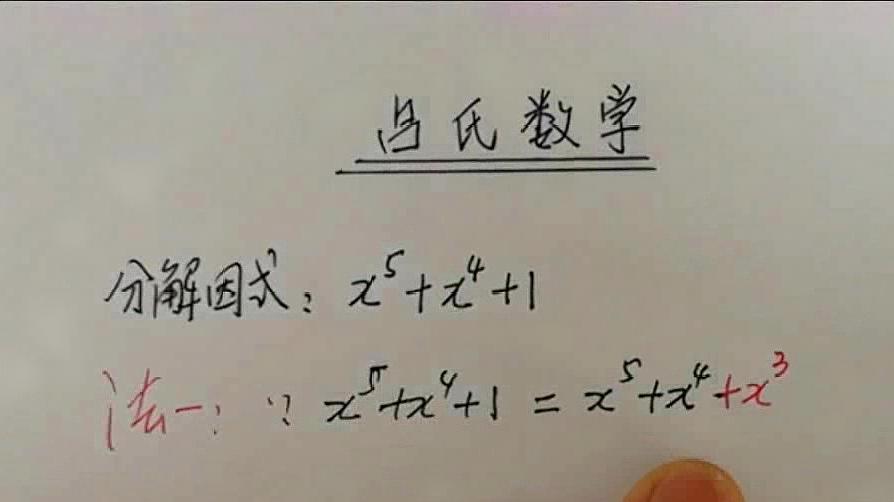 吕氏数学
分解因式：x⁵+x⁴+1
法一：∵ x⁵+x⁴+1 = x⁵+x⁴+x³